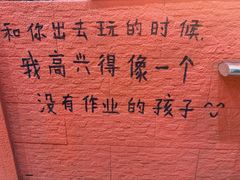 和你出去玩的时候,
我高兴得像一个
没有作业的孩子